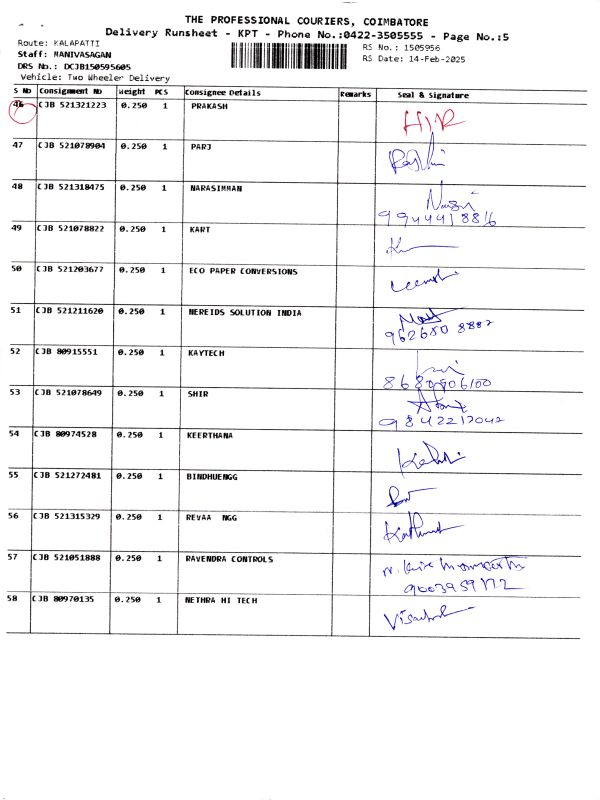 THE PROFESSIONAL COURIERS, COIMBATORE
Delivery Runsheet - KPT - Phone No.:0422-3505555 - Page No.:5
Route: KALAPATTI
RS No.: 1505956
Staff: MANIVASAGAN
RS Date: 14-Feb-2025
DRS No.: DCJB150595605
Vehicle: Two Wheeler Delivery
S No Consignment No Weight PCS Consignee Details Remarks Seal & Signature
46 CJB 521321223 0.250 1 PRAKASH
47 CJB 521078904 0.250 1 PARJ
48 CJB 521318475 0.250 1 NARASIMMAN
9944418816
49 CJB 521078822 0.250 1 KART
50 CJB 521203677 0.250 1 ECO PAPER CONVERSIONS
51 CJB 521211620 0.250 1 NEREIDS SOLUTION INDIA
962680 8882
52 CJB 80915551 0.250 1 KAYTECH
53 CJB 521078649 0.250 1 SHIR
9842217042
54 CJB 80974528 0.250 1 KEERTHANA
55 CJB 521272481 0.250 1 BINDHUENGG
56 CJB 521315329 0.250 1 REVAA NGG
57 CJB 521051888 0.250 1 RAVENDRA CONTROLS
58 CJB 80970135 0.250 1 NETHRA HI TECH